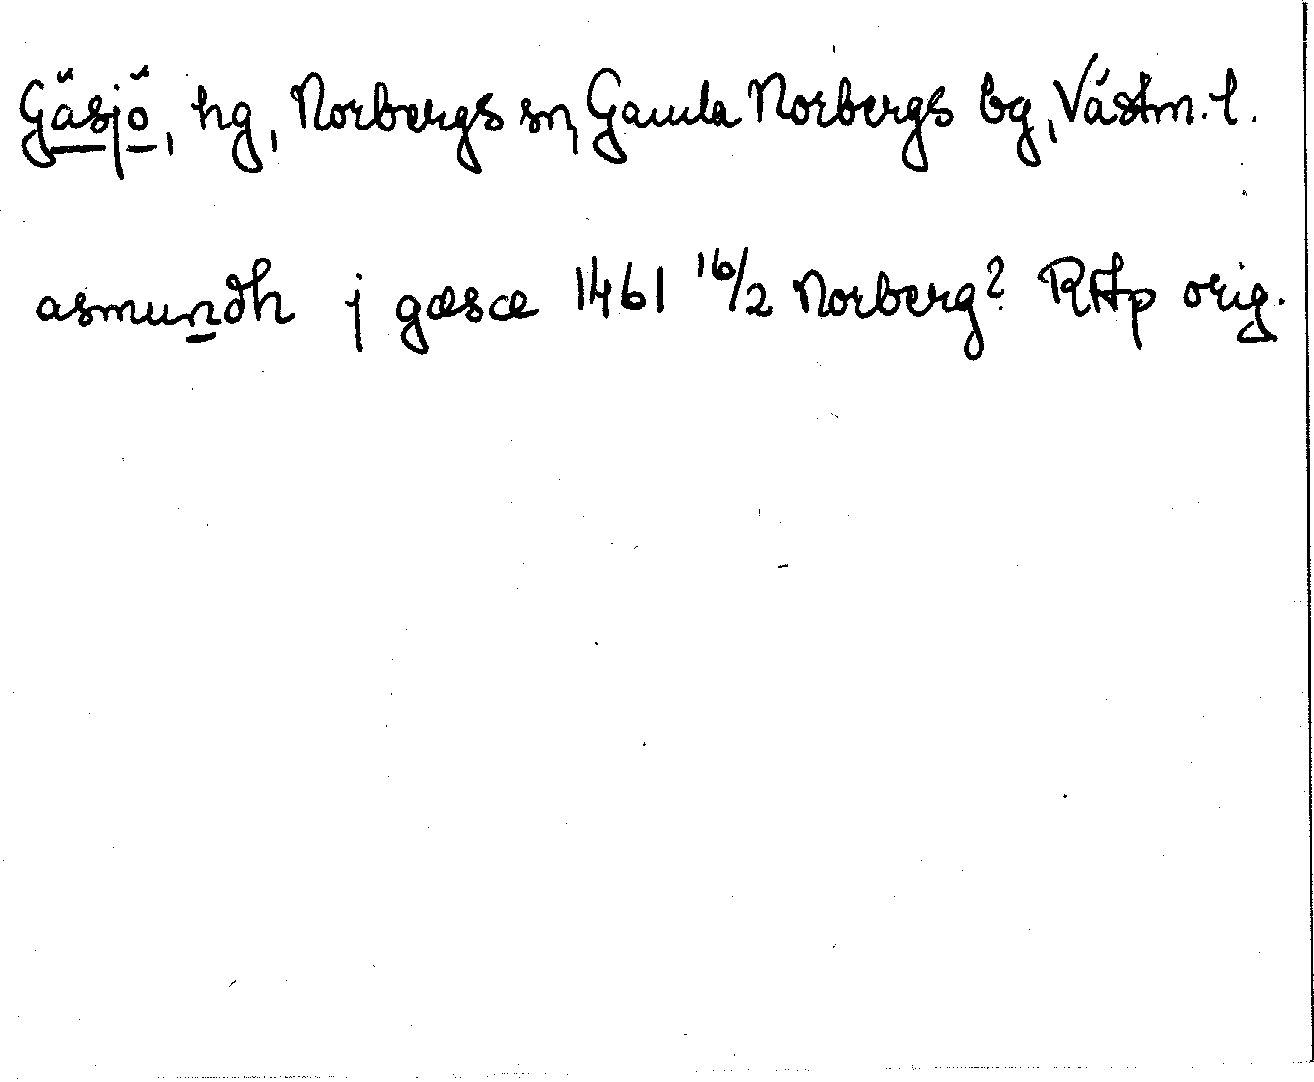 Gäsjö, hg, Norbergs sn, Gamla Norbergs bg, Västm. l.
asmundh j gæsæ 1461 16/2 Norberg? RAp orig.